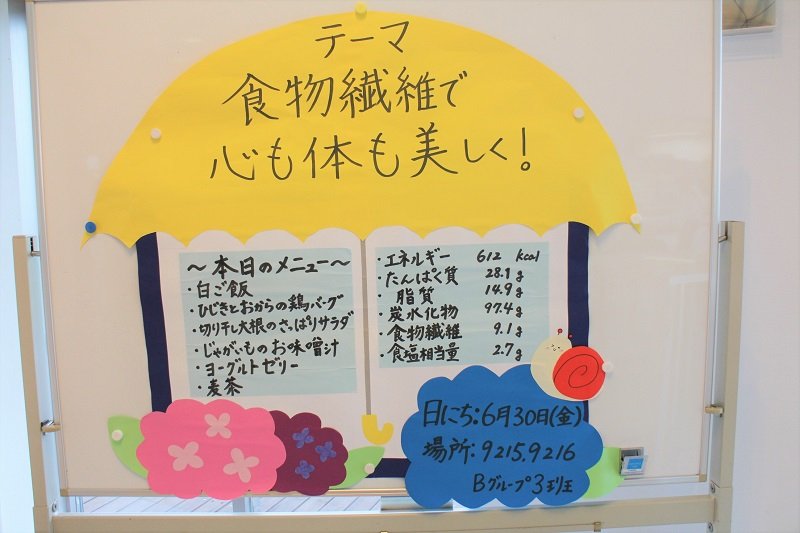 テーマ
食物繊維で
心も体も美しく!
～本日のメニュー～
・白ご飯
・ひじきとおからの鶏バーグ
・切り干し大根のさっぱりサラダ
・じゃがいものお味噌汁
・ヨーグルトゼリー
・麦茶
・エネルギー 612 kcal
・たんぱく質 28.1g
・脂質 14.9g
・炭水化物 97.4g
・食物繊維 9.1g
・食塩相当量 2.7g
日にち:6月30日(金)
場所:9215.9216
Bグループ3班